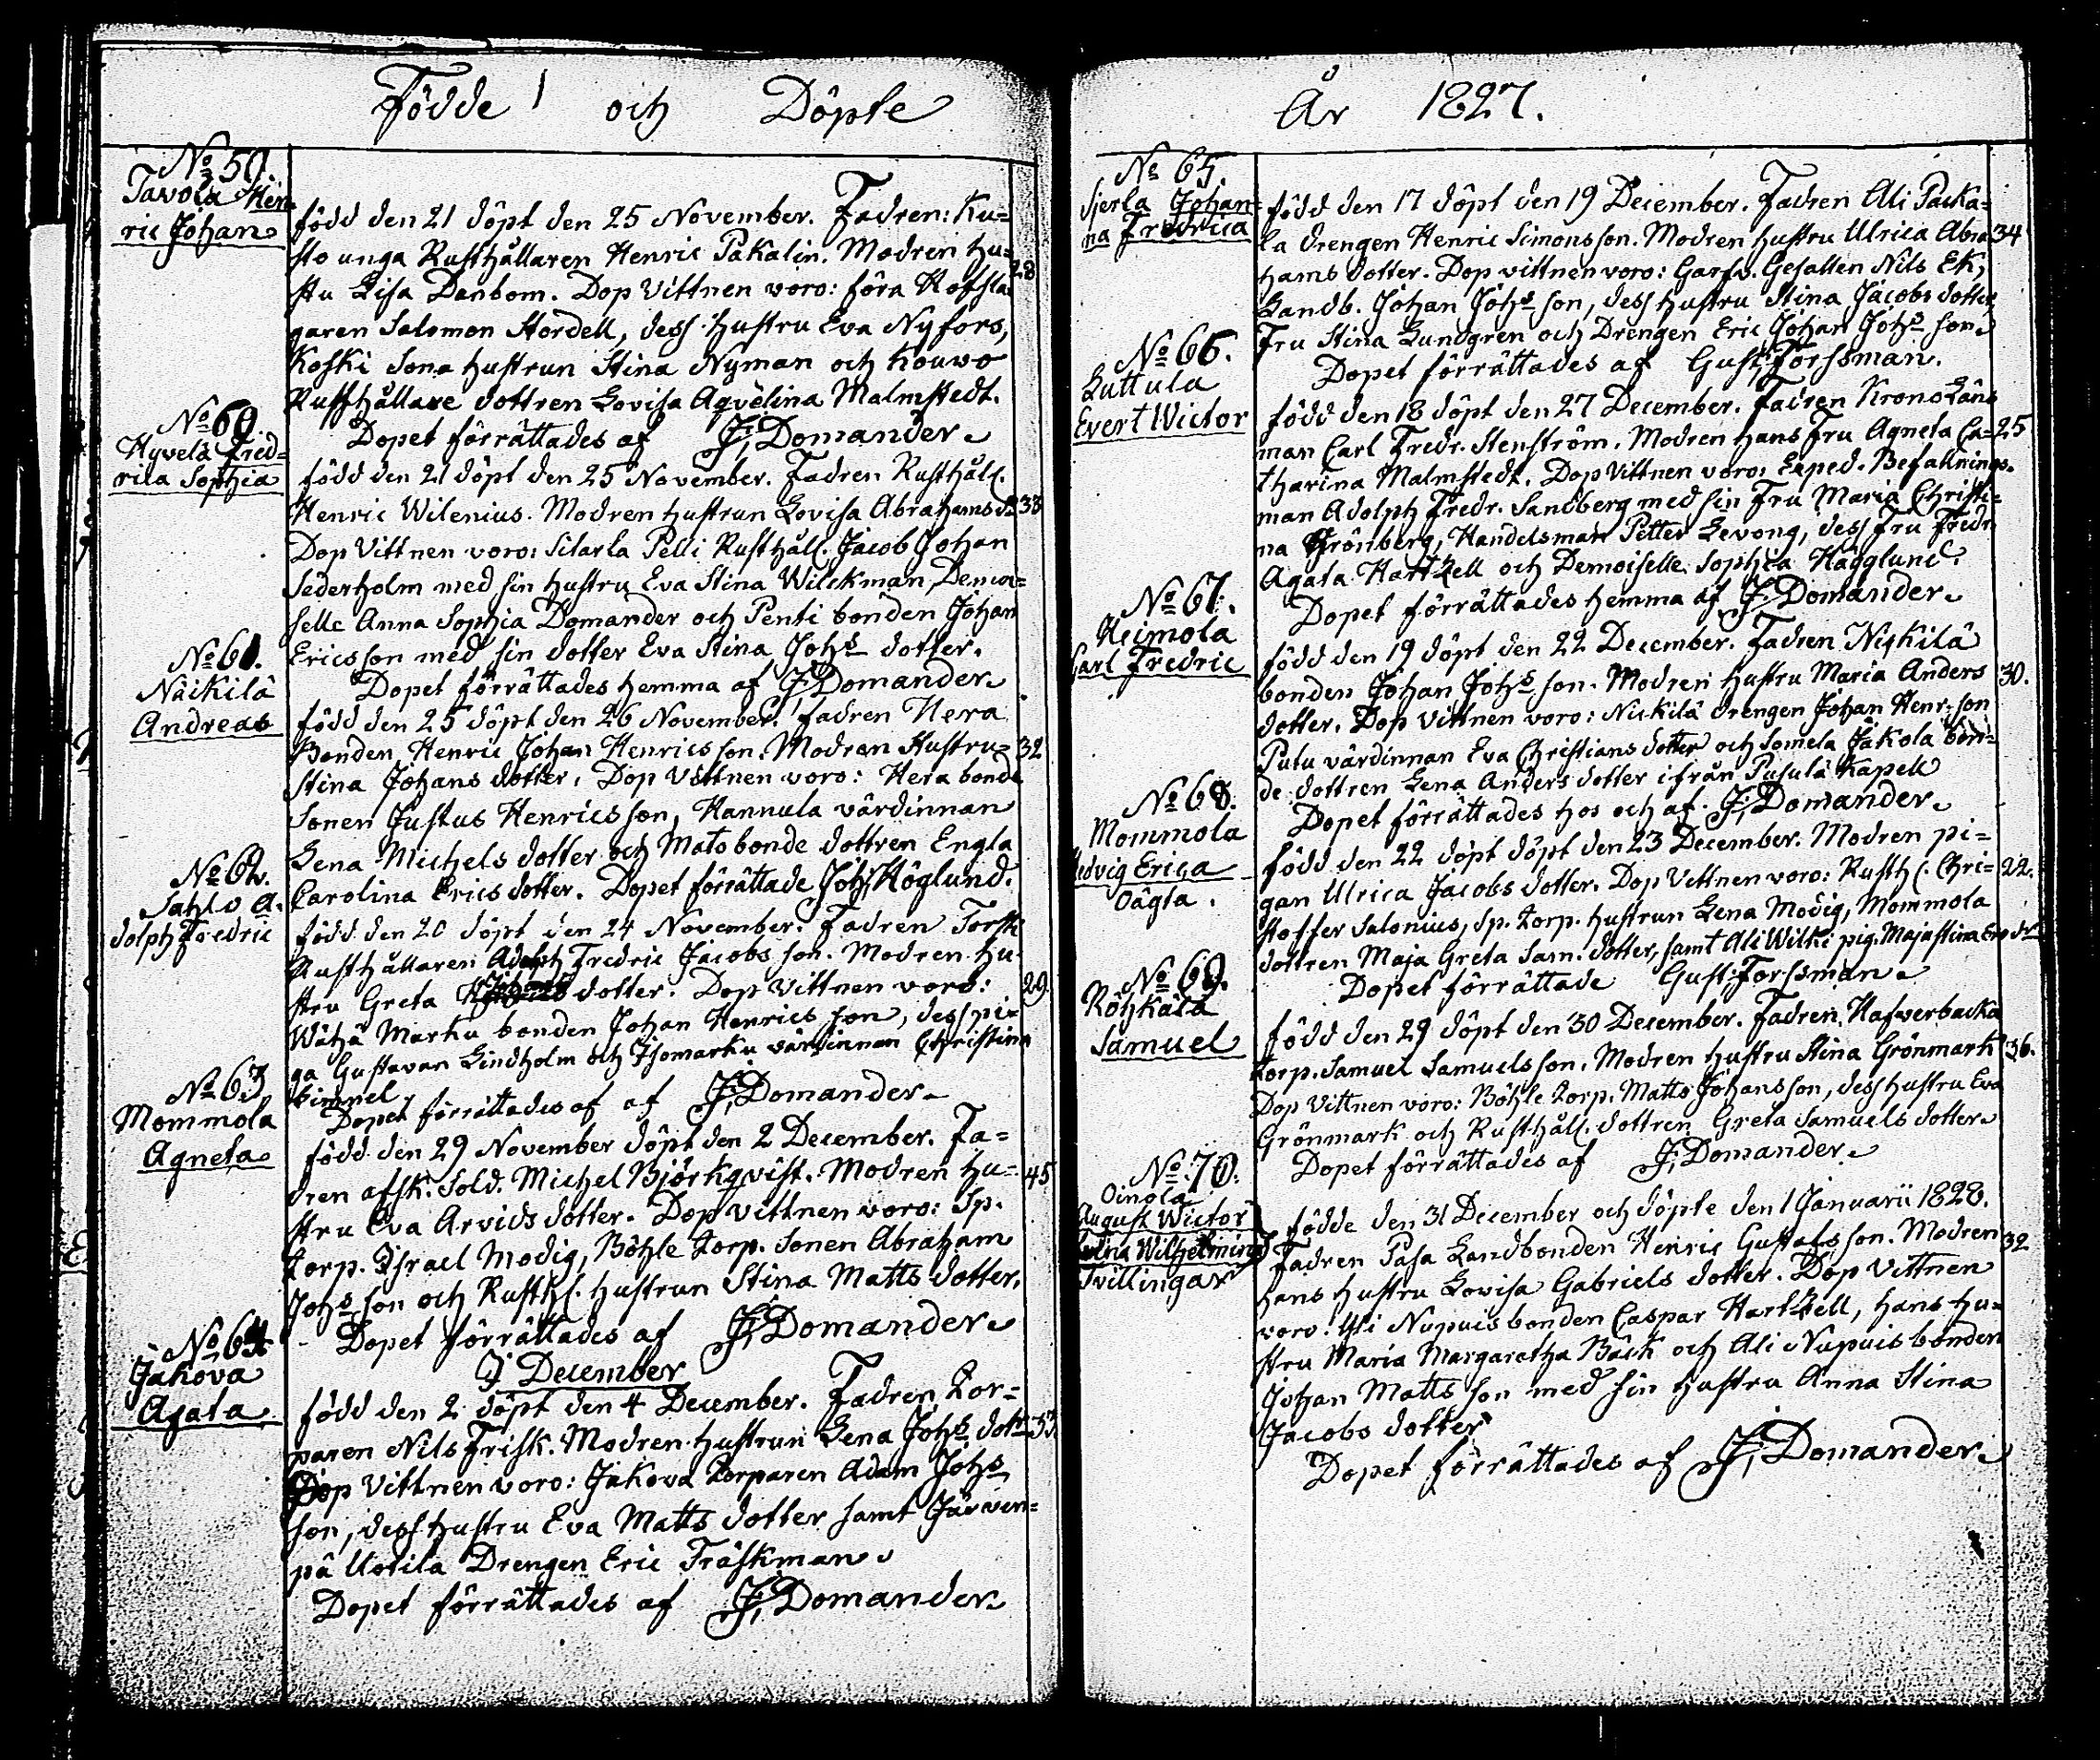 Födde och Döpte
No 59.
Tavola Hen=
ric Johan
född den 21 döpt den 25 November. Fadren: Ku=
sto unga Rusthållaren Henric Pakalin. Modren Hu=
stru Lisa Danbom. Dop Vittnen voro: föra Hofsla
28
garen Salomon Nordell, dess Hustru Eva Nyfors,
Koski Sona Hustrun Stina Nyman och Kouvo
Rusthållare dottren Lovisa Aqvelina Malmstedt.
Dopet förrättades af J. Domander
No 60.
Hyvelä Fred=
rica Sophia
född den 21 döpt den 25 November. Fadren Rusthåll.
Henric Wilenius. Modren Hustrun Lovisa Abrahams d. 38
Dop Vittnen voro: Silarla Pelli Rusthåll. Jacob Johan
Sederholm med sin Hustru Eva Stina Wilckman, Demoi=
selle Anna Sophia Domander och Penti bonden Johan
Ericsson med sin dotter Eva Stina Johs dotter.
Dopet förrättades hemma af J. Domander
No 61.
Näikilä
Andreas
född den 25 döpt den 26 November. Fadren Hera
Bonden Henric Johan Henrics son. Modren Hustru= 32
Stina Johans dotter. Dop Vittnen voro: Hera bonde
Sonen Justus Henrics son, Hannula värdinnan
Lena Michels dotter och Mato bonde dottren Engla
Carolina Erics dotter. Dopet förrättade Joh. Höglund.
No 62.
Sahlo A.
dolph Fredric
född den 20 döpt den 24 November. Fadren Torsti
Rusthållaren Adolph Fredric Jacobs son. Modren Hu
stru Greta Johans dotter. Dop Vittnen voro: 29.
Wähä Marku bonden Johan Henrics son, dess pi=
ga Gustavan Lindholm och Isomarku värdinnan Christina
Himnel.
Dopet förrättades af af J. Domander
No 63
Mommola
Agneta
född den 29 November döpt den 2 December. Fa=
dren afsk. Sold. Michel Björkqvist. Modren Hu= 45
stru Eva Arvids dotter. Dop vittnen voro: Sp.
Torp. Israel Modig, Böhle Torp. Sonen Abraham
Johs son och Rusth. Hustrun Stina Matts dotter.
Dopet förrättades af J. Domander
J December
No 64
Jakova
Agata
född den 2 döpt den 4 December. Fadren Tor=
paren Nils Frisk. Modren Hustrun Lena Johs dotr 33
Dop Vittnen voro: Jakova Torparen Adam Johs
son, dess Hustru Eva Matts dotter samt Järven=
pä Uotila Drengen Eric Träskman.
Dopet förrättades af J. Domander
År 1827.
No 65.
Sjerla Johan=
na Fredrica
född den 17 döpt den 19 December. Fadren Ali Packa=
la drengen Henric Simons son. Modren Hustru Ulrica Abra 34
hams dotter. Dop vittnen voro: Garfv. Gesällen Nils Ek,
Landb. Johan Johs son, dess Hustru Stina Jacobs dotter,
Fru Stina Lundgren och Drengen Eric Johan Johs son.
Dopet förrättades af Gust. Forssman.
No 66.
Luttula
Evert Wictor
född den 18 döpt den 27 December. Fadren Krono Läns
man Carl Fredr. Stenström. Modren Hans Fru Agneta Ca= 25
tharina Malmstedt. Dop Vittnen voro: Exped. Befallnings.
man Adolph Fredr. Sandberg med sin Fru Maria Christi=
na Grönberg, Handelsman Petter Levong, dess Fru Fredr.
Agata Hartzell och Demoiselle Sophia Hägglund.
Dopet förrättades hemma af J. Domander
No 67.
Heimola
Carl Fredric
född den 19 döpt den 22 December. Fadren Niskilä
bonden Johan Johs son. Modren Hustru Maria Anders 30.
dotter. Dop vittnen voro: Niskilä drengen Johan Henr. son
Putu värdinnan Eva Christians dotter och Somela Jakola bon=
de dottren Lena Anders dotter ifrån Pusula Kapell
Dopet förrättades hos och af J. Domander
No 68.
Mommola
Hedvig Erica
Oägta.
född den 22 döpt döpt den 23 December. Modren pi=
gan Ulrica Jacobs dotter. Dop Vittnen voro: Rusth. Chri= 22.
stoffer Salonius, Sp. Torp. Hustrun Lena Modig, Mommola
dottren Maja Greta Sam. dotter, samt Ali Wilki pig. Maja Stina Ers dr
Dopet förrättade Gust. Forssman
No 69.
Röhkälä
Samuel
född den 29 döpt den 30 December. Fadren Hafverbacka
Torp. Samuel Samuels son. Modren Hustru Stina Grönmark 36.
Dop Vittnen voro: Böhle Torp. Matts Johansson, dess Hustru Eva
Grönmark och Rusthåll. dottren Greta Samuels dotter
Dopet förrättades af J. Domander
No 70.
Oinola
August Wictor
Wilhelmina
Tvillingar
födde den 31 December och döpte den 1 Januarii 1828.
Fadren Pasa Landbonden Henric Gustafs son. Modren 32
Hans Hustru Lovisa Gabriels dotter. Dop Vittnen
voro: Yli Nupuis bonden Caspar Hartzell, hans Hu=
stru Maria Margaretha Bäck och Ali Nupuis bonden
Johan Matts son med sin Hustru Anna Stina
Jacobs dotter
Dopet förrättades af J. Domander